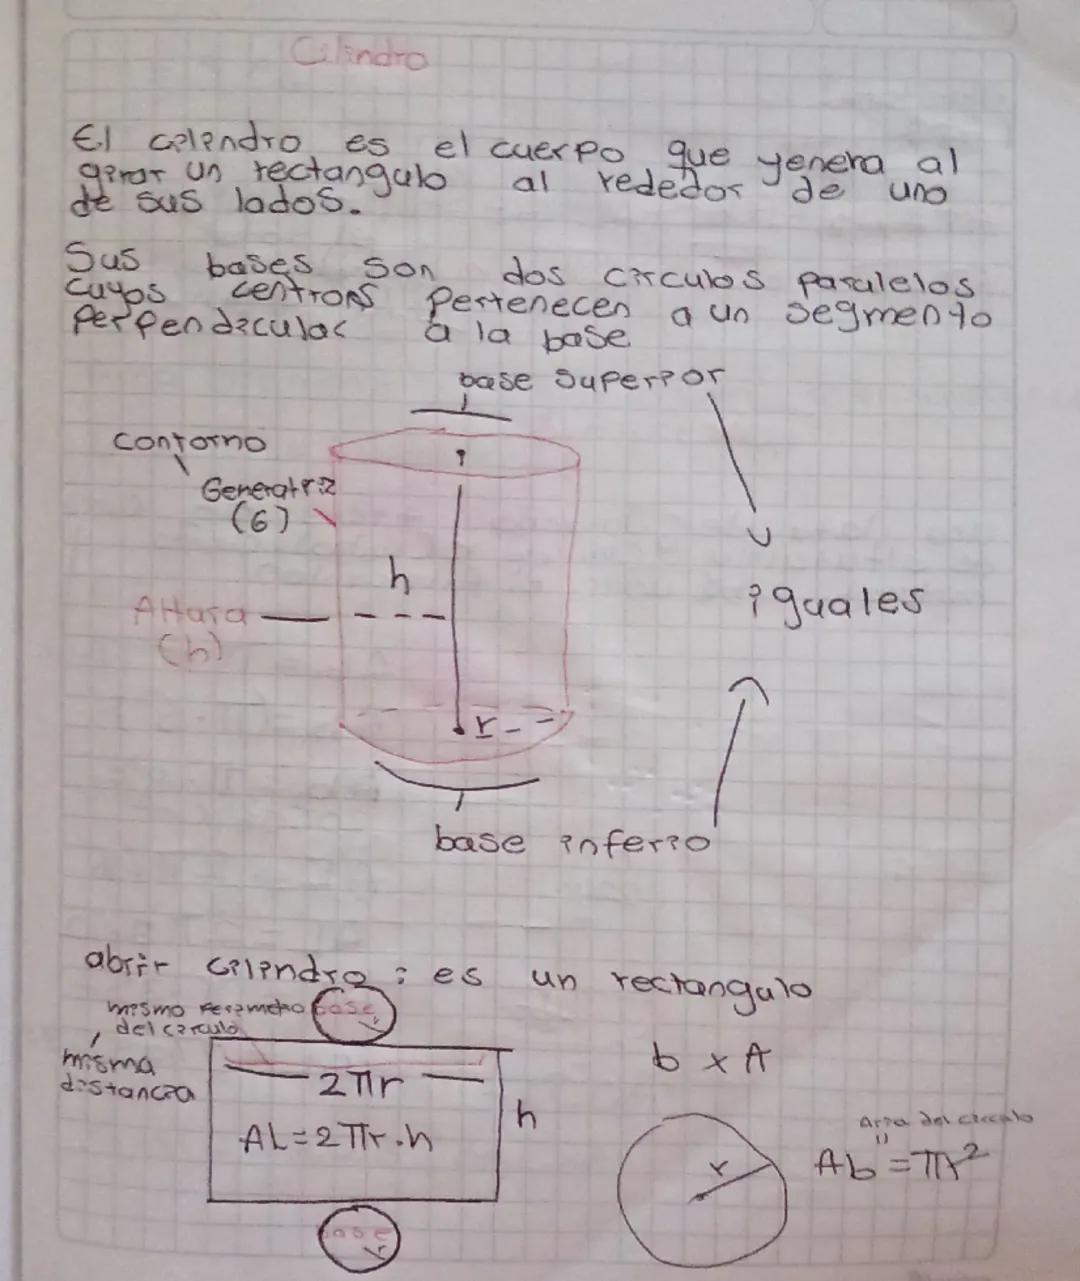 Cilindro
El cilindro es el cuerpo que yenera al
girar un rectangulo al rededor de uno
de sus lados.
Sus bases son dos circulos paralelos
cuyos centrons pertenecen a un segmento
perpendicular a la base
base superior
contorno
Generatriz
(G)
h
Altura
(h)
iguales
r
base inferio
abrir cilindro : es un rectangulo
mismo perimetro base
del circulo
r
misma
distancia
2πr
b x A
h
AL=2πr.h
Area del circulo
"
r
Ab =πr²
base
r